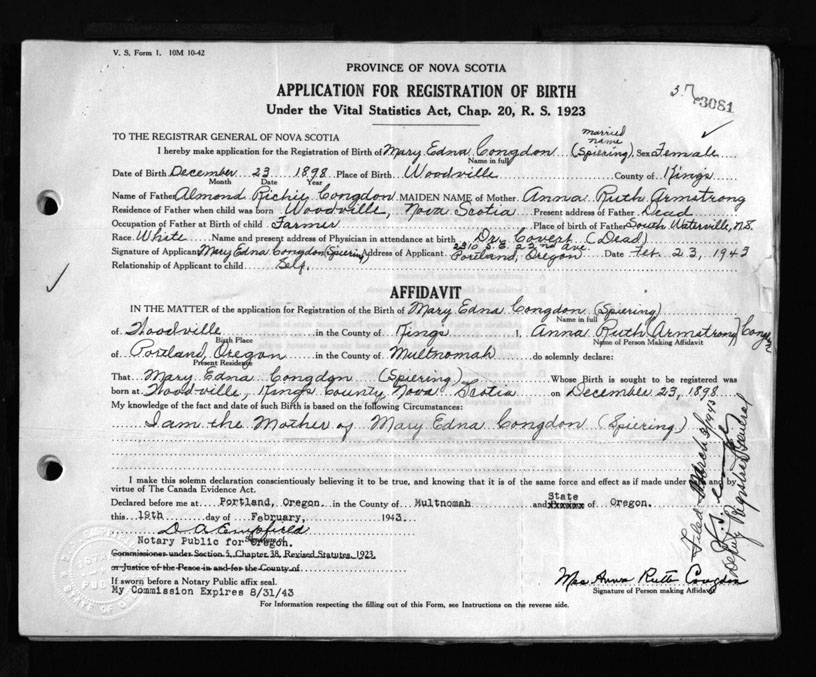 V. S. Form 1. 10M 10-42
PROVINCE OF NOVA SCOTIA
APPLICATION FOR REGISTRATION OF BIRTH
Under the Vital Statistics Act, Chap. 20, R. S. 1923
57
73081
TO THE REGISTRAR GENERAL OF NOVA SCOTIA
married name
I hereby make application for the Registration of Birth of Mary Edna Congdon (Spiering) Sex Female
Name in full
Date of Birth December 23 1898 Place of Birth Woodville County of Kings
Month Date Year
Name of Father Almond Richie Congdon MAIDEN NAME of Mother Anna Ruth Armstrong
Residence of Father when child was born Woodville, Nova Scotia Present address of Father Dead
Occupation of Father at Birth of child Farmer Place of birth of Father South Waterville, N.S.
Race White Name and present address of Physician in attendance at birth Dr. Covert (Dead)
2310 S.E 23nd Ave
Signature of Applicant Mary Edna Congdon (Spiering) Address of Applicant Portland, Oregon Date Feb. 23, 1943
Relationship of Applicant to child Self.
AFFIDAVIT
IN THE MATTER of the application for Registration of the Birth of Mary Edna Congdon (Spiering)
Name in full
of Woodville in the County of Kings I, Anna Ruth (Armstrong) Congdon
Birth Place Name of Person Making Affidavit
of Portland, Oregon in the County of Multnomah do solemnly declare:
Present Residence
That Mary Edna Congdon (Spiering) Whose Birth is sought to be registered was
born at Woodville, Kings County, Nova Scotia on December 23, 1898
My knowledge of the fact and date of such Birth is based on the following Circumstances:
I am the Mother of Mary Edna Congdon (Spiering)
I make this solemn declaration conscientiously believing it to be true, and knowing that it is of the same force and effect as if made under and by
virtue of The Canada Evidence Act.
Declared before me at Portland, Oregon. in the County of Multnomah and State xxxxxx of Oregon.
this 19th day of February, 1943
Notary Public for Oregon.
Commissioner under Section 5, Chapter 38, Revised Statutes, 1923
or Justice of the Peace in and for the County of
If sworn before a Notary Public affix seal.
My Commission Expires 8/31/43
Mrs Anna Ruth Congdon
Signature of Person making Affidavit
For Information respecting the filling out of this Form, see Instructions on the reverse side.
Filed March 3/1943
Deputy Registrar General